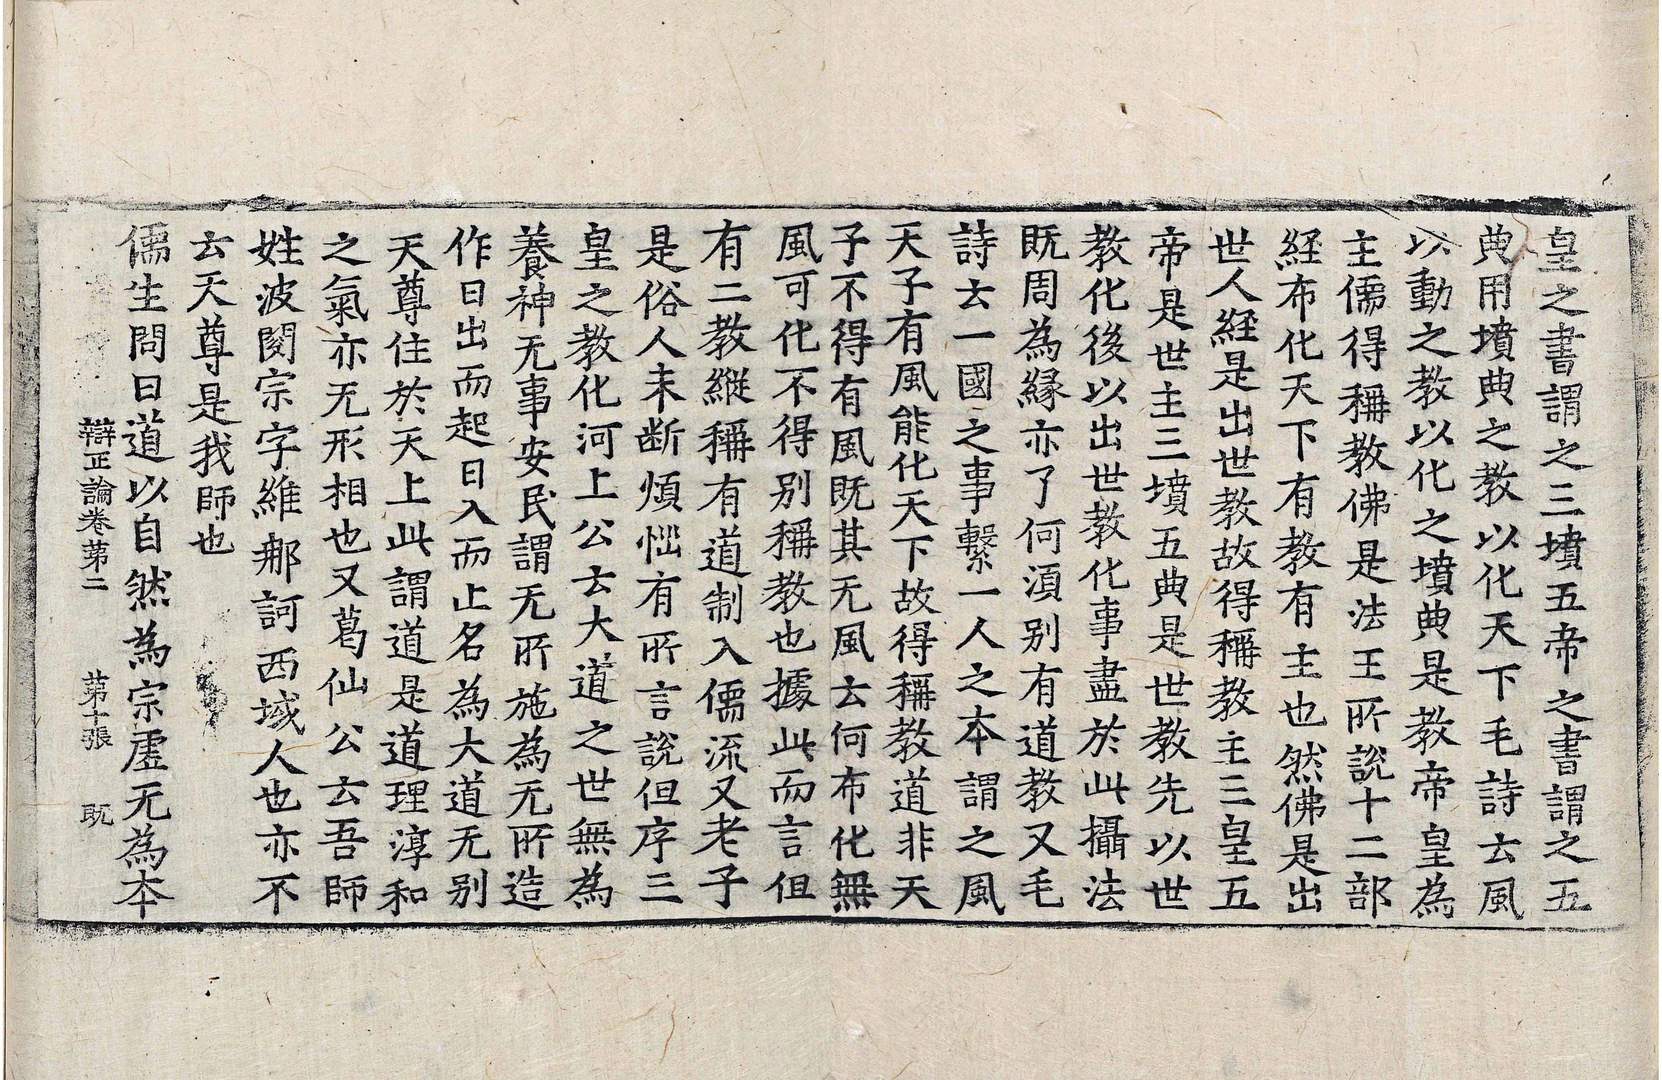 皇之書謂之三墳五帝之書謂之五
典用墳典之教以化天下毛詩云風
以動之教以化之墳典是教帝皇為
主儒得稱教佛是法王所說十二部
経布化天下有教有主也然佛是出
世人経是出世教故得稱教主三皇五
帝是世主三墳五典是世教先以世
教化後以出世教化事盡於此攝法
既周為緣亦了何湏别有道教又毛
詩云一國之事繫一人之本謂之風
天子有風能化天下故得稱教道非天
子不得有風既其无風云何布化無
風可化不得别稱教也據此而言但
有二教縱稱有道制入儒流又老子
是俗人未断煩惱有所言說但序三
皇之教化河上公云大道之世無為
養神无事安民謂无所施為无所造
作日出而起日入而止名為大道无别
天尊住於天上此謂道是道理淳和
之氣亦无形相也又葛仙公云吾師
姓波閱宗字維那訶西域人也亦不
云天尊是我師也
儒生問曰道以自然為宗虛无為本
辯正論卷苐二 苐十張 既